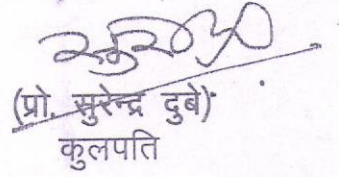 (प्रो. सुरेन्द्र दुबे)
कुलपति